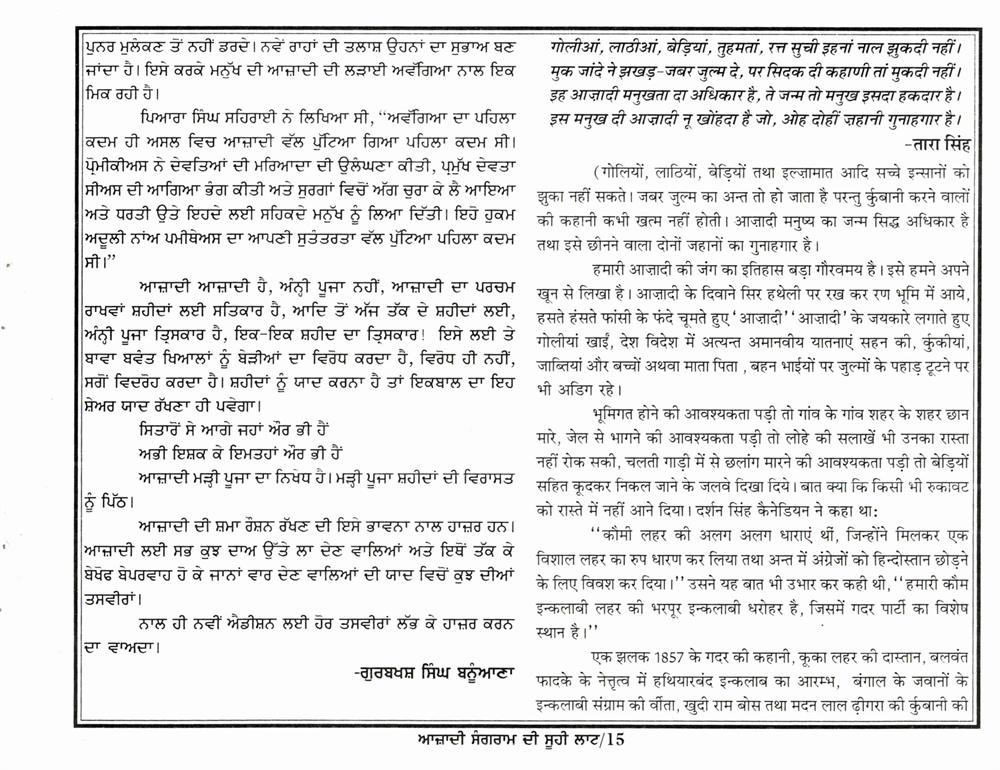 ਪੁਨਰ ਮੁਲੰਕਣ ਤੋਂ ਨਹੀਂ ਡਰਦੇ। ਨਵੇਂ ਰਾਹਾਂ ਦੀ ਤਲਾਸ਼ ਉਹਨਾਂ ਦਾ ਸੁਭਾਅ ਬਣ
ਜਾਂਦਾ ਹੈ। ਇਸੇ ਕਰਕੇ ਮਨੁੱਖ ਦੀ ਆਜ਼ਾਦੀ ਦੀ ਲੜਾਈ ਅਵੱਗਿਆ ਨਾਲ ਇਕ
ਮਿਕ ਰਹੀ ਹੈ।
ਪਿਆਰਾ ਸਿੰਘ ਸਹਿਰਾਈ ਨੇ ਲਿਖਿਆ ਸੀ, ‘‘ਅਵੱਗਿਆ ਦਾ ਪਹਿਲਾ
ਕਦਮ ਹੀ ਅਸਲ ਵਿਚ ਆਜ਼ਾਦੀ ਵੱਲ ਪੁੱਟਿਆ ਗਿਆ ਪਹਿਲਾ ਕਦਮ ਸੀ।
ਪ੍ਰੋਮੀਕੀਅਸ ਨੇ ਦੇਵਤਿਆਂ ਦੀ ਮਰਿਆਦਾ ਦੀ ਉਲੰਘਣਾ ਕੀਤੀ, ਪ੍ਰਮੁੱਖ ਦੇਵਤਾ
ਸੀਅਸ ਦੀ ਆਗਿਆ ਭੰਗ ਕੀਤੀ ਅਤੇ ਸੁਰਗਾਂ ਵਿਚੋਂ ਅੱਗ ਚੁਰਾ ਕੇ ਲੈ ਆਇਆ
ਅਤੇ ਧਰਤੀ ਉਤੇ ਇਹਦੇ ਲਈ ਸਹਿਕਦੇ ਮਨੁੱਖ ਨੂੰ ਲਿਆ ਦਿੱਤੀ। ਇਹੋ ਹੁਕਮ
ਅਦੂਲੀ ਨਾਂਅ ਪਮੀਥੇਅਸ ਦਾ ਆਪਣੀ ਸੁਤੰਤਰਤਾ ਵੱਲ ਪੁੱਟਿਆ ਪਹਿਲਾ ਕਦਮ
ਸੀ।’’
ਆਜ਼ਾਦੀ ਆਜ਼ਾਦੀ ਹੈ, ਅੰਨ੍ਹੀ ਪੂਜਾ ਨਹੀਂ, ਆਜ਼ਾਦੀ ਦਾ ਪਰਚਮ
ਰਾਖਵਾਂ ਸ਼ਹੀਦਾਂ ਲਈ ਸਤਿਕਾਰ ਹੈ, ਆਦਿ ਤੋਂ ਅੱਜ ਤੱਕ ਦੇ ਸ਼ਹੀਦਾਂ ਲਈ,
ਅੰਨ੍ਹੀ ਪੂਜਾ ਤ੍ਰਿਸਕਾਰ ਹੈ, ਇਕ-ਇਕ ਸ਼ਹੀਦ ਦਾ ਤ੍ਰਿਸਕਾਰ! ਇਸੇ ਲਈ ਤੇ
ਬਾਵਾ ਬਵੰਤ ਖਿਆਲਾਂ ਨੂੰ ਬੇੜੀਆਂ ਦਾ ਵਿਰੋਧ ਕਰਦਾ ਹੈ, ਵਿਰੋਧ ਹੀ ਨਹੀਂ,
ਸਗੋਂ ਵਿਦਰੋਹ ਕਰਦਾ ਹੈ। ਸ਼ਹੀਦਾਂ ਨੂੰ ਯਾਦ ਕਰਨਾ ਹੈ ਤਾਂ ਇਕਬਾਲ ਦਾ ਇਹ
ਸ਼ੇਅਰ ਯਾਦ ਰੱਖਣਾ ਹੀ ਪਵੇਗਾ।
ਸਿਤਾਰੋਂ ਸੇ ਆਗੇ ਜਹਾਂ ਔਰ ਭੀ ਹੈਂ
ਅਭੀ ਇਸ਼ਕ ਕੇ ਇਮਤਹਾਂ ਔਰ ਭੀ ਹੈਂ
ਆਜ਼ਾਦੀ ਮੜ੍ਹੀ ਪੂਜਾ ਦਾ ਨਿਖੇਧ ਹੈ। ਮੜ੍ਹੀ ਪੂਜਾ ਸ਼ਹੀਦਾਂ ਦੀ ਵਿਰਾਸਤ
ਨੂੰ ਪਿੱਠ।
ਆਜ਼ਾਦੀ ਦੀ ਸ਼ਮਾ ਰੌਸ਼ਨ ਰੱਖਣ ਦੀ ਇਸੇ ਭਾਵਨਾ ਨਾਲ ਹਾਜ਼ਰ ਹਨ।
ਆਜ਼ਾਦੀ ਲਈ ਸਭ ਕੁਝ ਦਾਅ ਉੱਤੇ ਲਾ ਦੇਣ ਵਾਲਿਆਂ ਅਤੇ ਇਥੋਂ ਤੱਕ ਕੇ
ਬੇਖੋਫ ਬੇਪਰਵਾਹ ਹੋ ਕੇ ਜਾਨਾਂ ਵਾਰ ਦੇਣ ਵਾਲਿਆਂ ਦੀ ਯਾਦ ਵਿਚੋਂ ਕੁਝ ਦੀਆਂ
ਤਸਵੀਰਾਂ।
ਨਾਲ ਹੀ ਨਵੀਂ ਐਡੀਸ਼ਨ ਲਈ ਹੋਰ ਤਸਵੀਰਾਂ ਲੱਭ ਕੇ ਹਾਜ਼ਰ ਕਰਨ
ਦਾ ਵਾਅਦਾ।
-ਗੁਰਬਖਸ਼ ਸਿੰਘ ਬਨੂੰਆਣਾ
गोलीआं, लाठीआं, बेड़ियां, तुहमतां, रत्त सुची इहनां नाल झुकदी नहीं।
मुक जांदे ने झखड़-जबर जुल्म दे, पर सिदक दी कहाणी तां मुकदी नहीं।
इह आज़ादी मनुखता दा अधिकार है, ते जन्म तो मनुख इसदा हकदार है।
इस मनुख दी आज़ादी नू खोंहदा है जो, ओह दोहीं ज़हानी गुनाहगार है।
-तारा सिंह
(गोलियों, लाठियों, बेड़ियों तथा इल्ज़ामात आदि सच्चे इन्सानों को
झुका नहीं सकते। जबर जुल्म का अन्त तो हो जाता है परन्तु र्कुबानी करने वालों
की कहानी कभी खत्म नहीं होती। आज़ादी मनुष्य का जन्म सिद्ध अधिकार है
तथा इसे छीनने वाला दोनों जहानों का गुनाहगार है।
हमारी आज़ादी की जंग का इतिहास बड़ा गौरवमय है। इसे हमने अपने
खून से लिखा है। आज़ादी के दिवाने सिर हथेली पर रख कर रण भूमि में आये,
हसते हंसते फांसी के फंदे चूमते हुए ‘आज़ादी’ ‘आज़ादी’ के जयकारे लगाते हुए
गोलीयां खाईं, देश विदेश में अत्यन्त अमानवीय यातनाएं सहन की, र्कुकीयां,
जाब्तियां और बच्चों अथवा माता पिता , बहन भाईयों पर जुल्मों के पहाड़ टूटने पर
भी अडिग रहे।
भूमिगत होने की आवश्यकता पड़ी तो गांव के गांव शहर के शहर छान
मारे, जेल से भागने की आवश्यकता पड़ी तो लोहे की सलाखें भी उनका रास्ता
नहीं रोक सकी, चलती गाड़ी में से छलांग मारने की आवश्यकता पड़ी तो बेड़ियों
सहित कूदकर निकल जाने के जलवे दिखा दिये। बात क्या कि किसी भी रुकावट
को रास्ते में नहीं आने दिया। दर्शन सिंह कैनेडियन ने कहा था:
‘‘कौमी लहर की अलग अलग धाराएं थीं, जिन्होंने मिलकर एक
विशाल लहर का रुप धारण कर लिया तथा अन्त में अंग्रेजों को हिन्दोस्तान छोड़ने
के लिए विवश कर दिया।’’ उसने यह बात भी उभार कर कही थी, ‘‘हमारी कौम
इन्कलाबी लहर की भरपूर इन्कलाबी धरोहर है, जिसमें गदर पार्टी का विशेष
स्थान है।’’
एक झलक 1857 के गदर की कहानी, कूका लहर की दास्तान, बलवंत
फादके के नेत्तृत्व में हथियारबंद इन्कलाब का आरम्भ, बंगाल के जवानों के
इन्कलाबी संग्राम की र्वीता, खुदी राम बोस तथा मदन लाल ढ़ीगरा की र्कुबानी की
ਆਜ਼ਾਦੀ ਸੰਗਰਾਮ ਦੀ ਸੂਹੀ ਲਾਟ/15